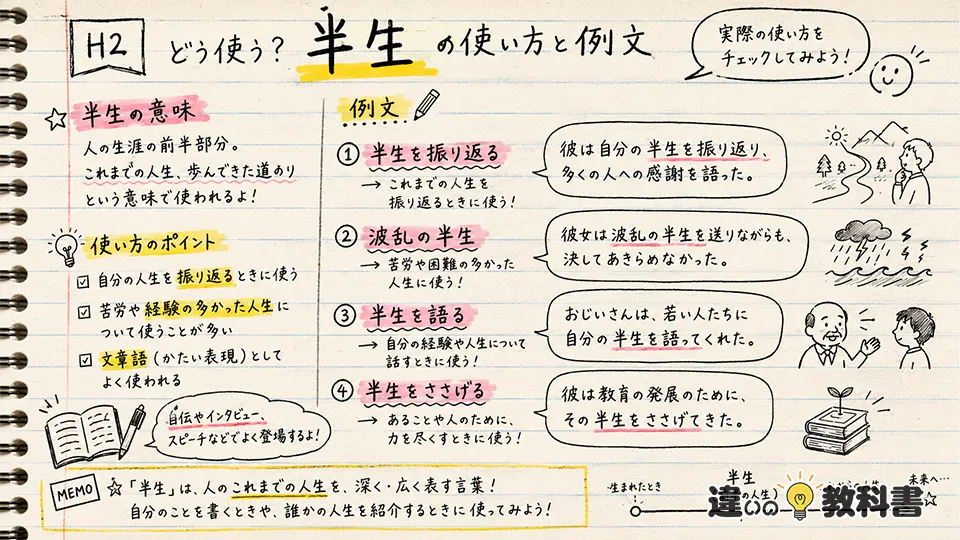 H2
どう使う? 半生 の使い方と例文
実際の使い方を
チェックしてみよう!
☆ 半生の意味
人の生涯の前半部分。
これまでの人生、歩んできた道のり
という意味で使われるよ!
使い方のポイント
☑ 自分の人生を振り返るときに使う
☑ 苦労や経験の多かった人生に
ついて使うことが多い
☑ 文章語(かたい表現)として
よく使われる
自伝やインタビュー、
スピーチなどでよく登場するよ!
例文
① 半生を振り返る
→ これまでの人生を
振り返るときに使う!
彼は自分の半生を振り返り、
多くの人への感謝を語った。
② 波乱の半生
→ 苦労や困難の多かった
人生に使う!
彼女は波乱の半生を送りながらも、
決してあきらめなかった。
③ 半生を語る
→ 自分の経験や人生について
話すときに使う!
おじいさんは、若い人たちに
自分の半生を語ってくれた。
④ 半生をささげる
→ あることや人のために、
力を尽くすときに使う!
彼は教育の発展のために、
その半生をささげてきた。
MEMO
☆「半生」は、人のこれまでの人生を、深く・広く表す言葉!
自分のことを書くときや、誰かの人生を紹介するときに使ってみよう!
生まれたとき
半生
の人生)
未来へ…
違いの教科書